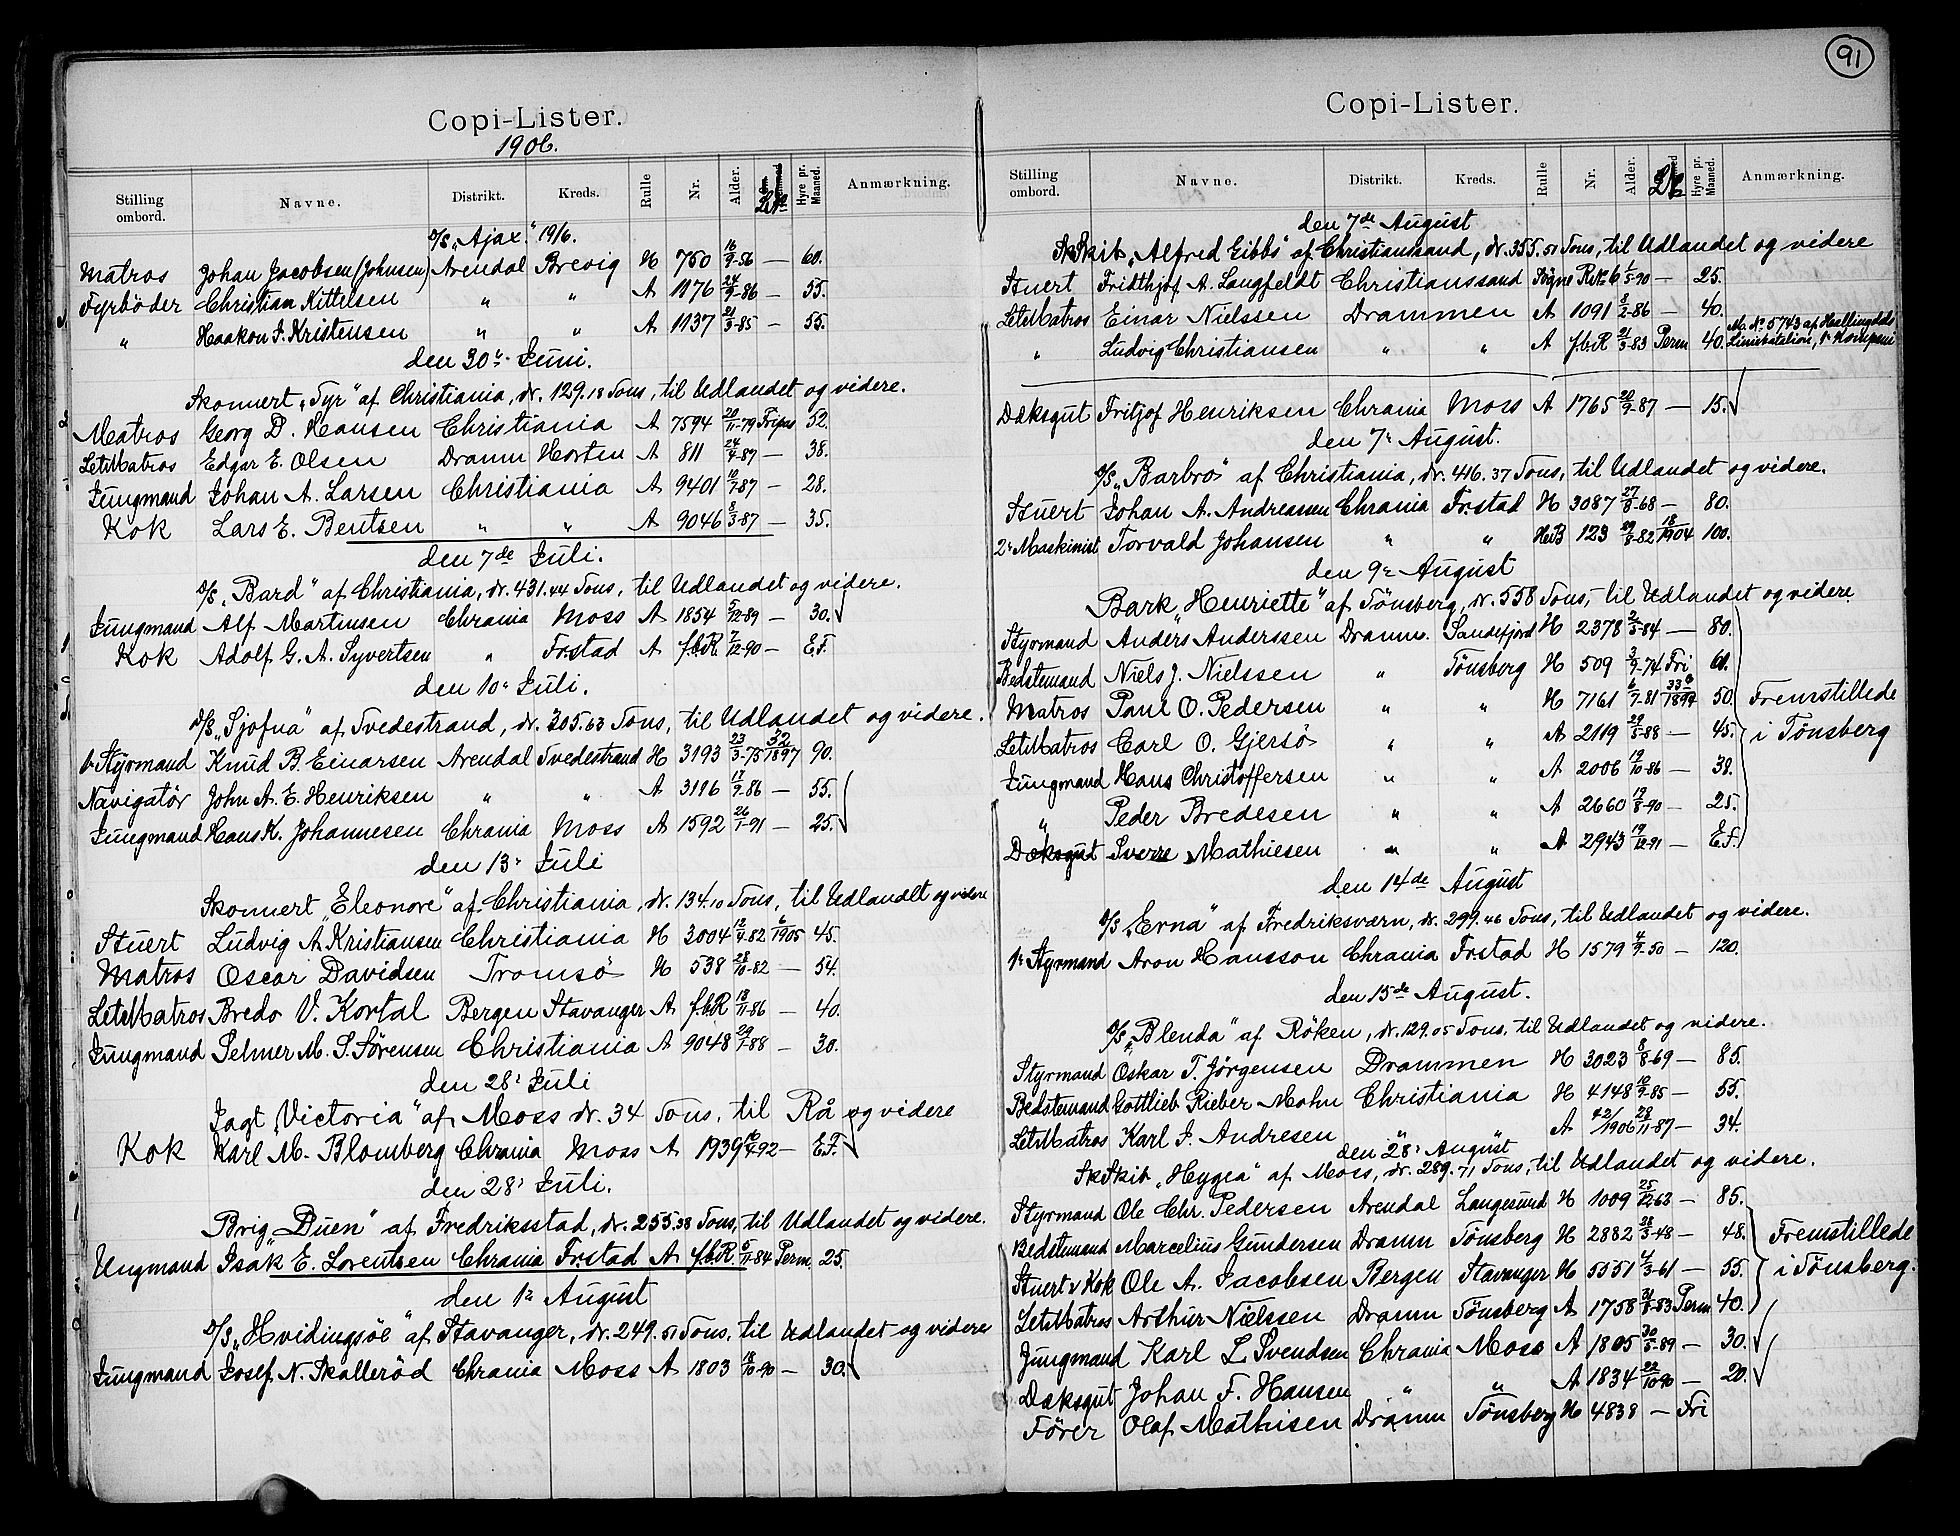 Copi-Lister.
1906.
Stilling ombord. Navne. Distrikt. Kreds. Rulle Nr. Alder. Hyre pr. Maaned. Anmærkning.
D/S „Ajax." 19/6.
Matros Johan Jacobsen (Johnsen) Arendal Brevig H 750 16/9-56 — 60.
Fyrböder Christian Kittelsen " " A 1176 24/9-86 — 55.
" Haakon J. Kristensen " " A 1137 21/3-85 — 55.
den 30te Juni.
Skonnert „Tyr" af Christiania, dr. 129.18 Tons, til Udlandet og videre.
Matros Georg D. Hansen Christiania A 7594 20/11-79 52.
LetMatros Edgar E. Olsen Dramm Horten A 811 24/4-87 — 38.
Jungmand Johan A. Larsen Christiania A 9401 10/7-87 — 28.
Kok Lars E. Bentsen " " A 9046 8/3-87 — 35.
den 7de Juli.
D/S „Bard" af Christiania, dr. 431.44 Tons, til Udlandet og videre.
Jungmand Alf Martinsen Chrania Moss A 1854 5/12-89 — 30.
Kok Adolf G. A. Syvertsen " Frstad A f.b.R 7/12-90 — E.F.
den 10de Juli.
D/S „Sjofna" af Tvedestrand, dr. 305.63 Tons, til Udlandet og videre.
1ste Styrmand Knud B. Einarsen Arendal Tvedestrand H 3193 23/3-75 32/1897 90.
Navigatör John A. E. Henriksen " " A 3116 17/9-86 — 55.
Jungmand Hans K. Johannesen Chrania Moss A 1592 26/1-91 — 25.
den 13de Juli
Skonnert „Eleonore" af Christiania, dr. 134.10 Tons, til Udlandet og videre
Stuert Ludvig A. Kristiansen Christiania H 3004 12/4-82 6/1905 45.
Matros Oscar Davidsen Tromsö H 538 28/10-82 — 54.
LetMatros Bredo V. Kortal Bergen Stavanger A f.b.R 18/11-86 — 40.
Jungmand Selmer M. S. Sörensen Christiania A 9048 29/1-88 — 30.
den 28de Juli
Jagt „Victoria" af Moss dr. 34 Tons, til Rå og videre
Kok Karl M. Blomberg Chrania Moss A 1939 16/4-92 — E.F.
den 28de Juli.
Brig „Duen" af Fredriksstad, dr. 255.38 Tons, til Udlandet og videre.
Ungmand Isak E. Lorentsen Chrania Frstad A f.b.R. 5/11-84 Perm 25.
den 1ste August
D/S „Hvidingsöe" af Stavanger, dr. 249.51 Tons, til Udlandet og videre
Jungmand Josef N. Skalleröd Chrania Moss A 1803 18/10-90 — 30.
91
Copi-Lister.
Stilling ombord. Navne. Distrikt. Kreds. Rulle Nr. Alder. Hyre pr. Maaned. Anmærkning.
den 7de August
SkSkib „Alfred Gibbs" af Christianssand, dr. 355.51 Tons, til Udlandet og videre
Stuert Fridthjof A. Langfeldt Christianssand Sögne 1/5-90 — 25.
LetMatros Einar Nielssen Drammen A 1091 8/2-86 — 40.
" Ludvig Christiansen " " A f.b.R 21/3-83 Perm 40. M. No 5743 af Hallingdals Liniebatalion, 1ste Kompani
Dæksgut Fritjof Henriksen Chrania Moss A 1765 20/9-87 — 15.
den 7de August.
D/S „Barbro" af Christiania, dr. 416.37 Tons, til Udlandet og videre.
Stuert Johan A. Andreassen Chrania Frstad H 3087 27/8-68 — 80.
2den Maskinist Torvald Johansen " " HeB 123 29/8-82 18/1904 100.
den 9de August
Bark „Henriette" af Tönsberg, dr. 558 Tons, til Udlandet og videre
Styrmand Anders Anderssen Dramm. Sandefjord H 2378 2/5-84 — 80.
Bedstemand Niels J. Nielssen " Tönsberg H 509 3/9-74 Fri 60.
Matros Paul O. Pedersen " " H 7161 6/7-81 50. Fremstillede
LetMatros Carl O. Gjersö " " A 2119 29/5-88 — 45. i Tönsberg
Jungmand Hans Christoffersen " " A 2006 19/10-86 — 38.
" Peder Bredesen " " A 2660 19/8-90 — 25.
Dæksgut Sverre Mathiesen " " A 2943 19/12-91 — E.F.
den 14de August
D/S „Erna" af Fredriksværn, dr. 299.46 Tons, til Udlandet og videre.
1ste Styrmand Aron Hansson Chrania Frstad H 1579 4/9-50 — 120.
den 15de August.
D/S „Blenda" af Röken, dr. 129.05 Tons, til Udlandet og videre.
Styrmand Oskar T. Jörgensen Drammen H 3023 8/8-69 — 85.
Bedstemand Gottlieb Rieber Mohn Christiania H 4148 10/9-85 — 55.
LetMatros Karl J. Andresen " " A 42/1906 28/11-87 — 34.
den 28de August
SkSkib „Hygea" af Moss, dr. 289.71 Tons, til Udlandet og videre.
Styrmand Ole Chr. Pedersen Arendal Langesund H 1009 25/12-63 — 85.
Bedstemand Marcelius Gundersen Dramm Tönsberg H 2882 28/3-48 — 48. Fremstillede
Stuert & Kok Ole A. Jacobsen Bergen Stavanger H 5551 4/3-61 — 55. i Tönsberg.
LetMatros Arthur Nielssen Dramm Tönsberg A 1758 21/8-83 Perm 40.
Jungmand Karl L Svendsen Chrania Moss A 1805 30/5-89 — 30.
Dæksgut Johan F. Hansen " " A 1834 22/10-90 — 20.
Förer Olaf Mathisen Dramm Tönsberg H 4838 — Fri